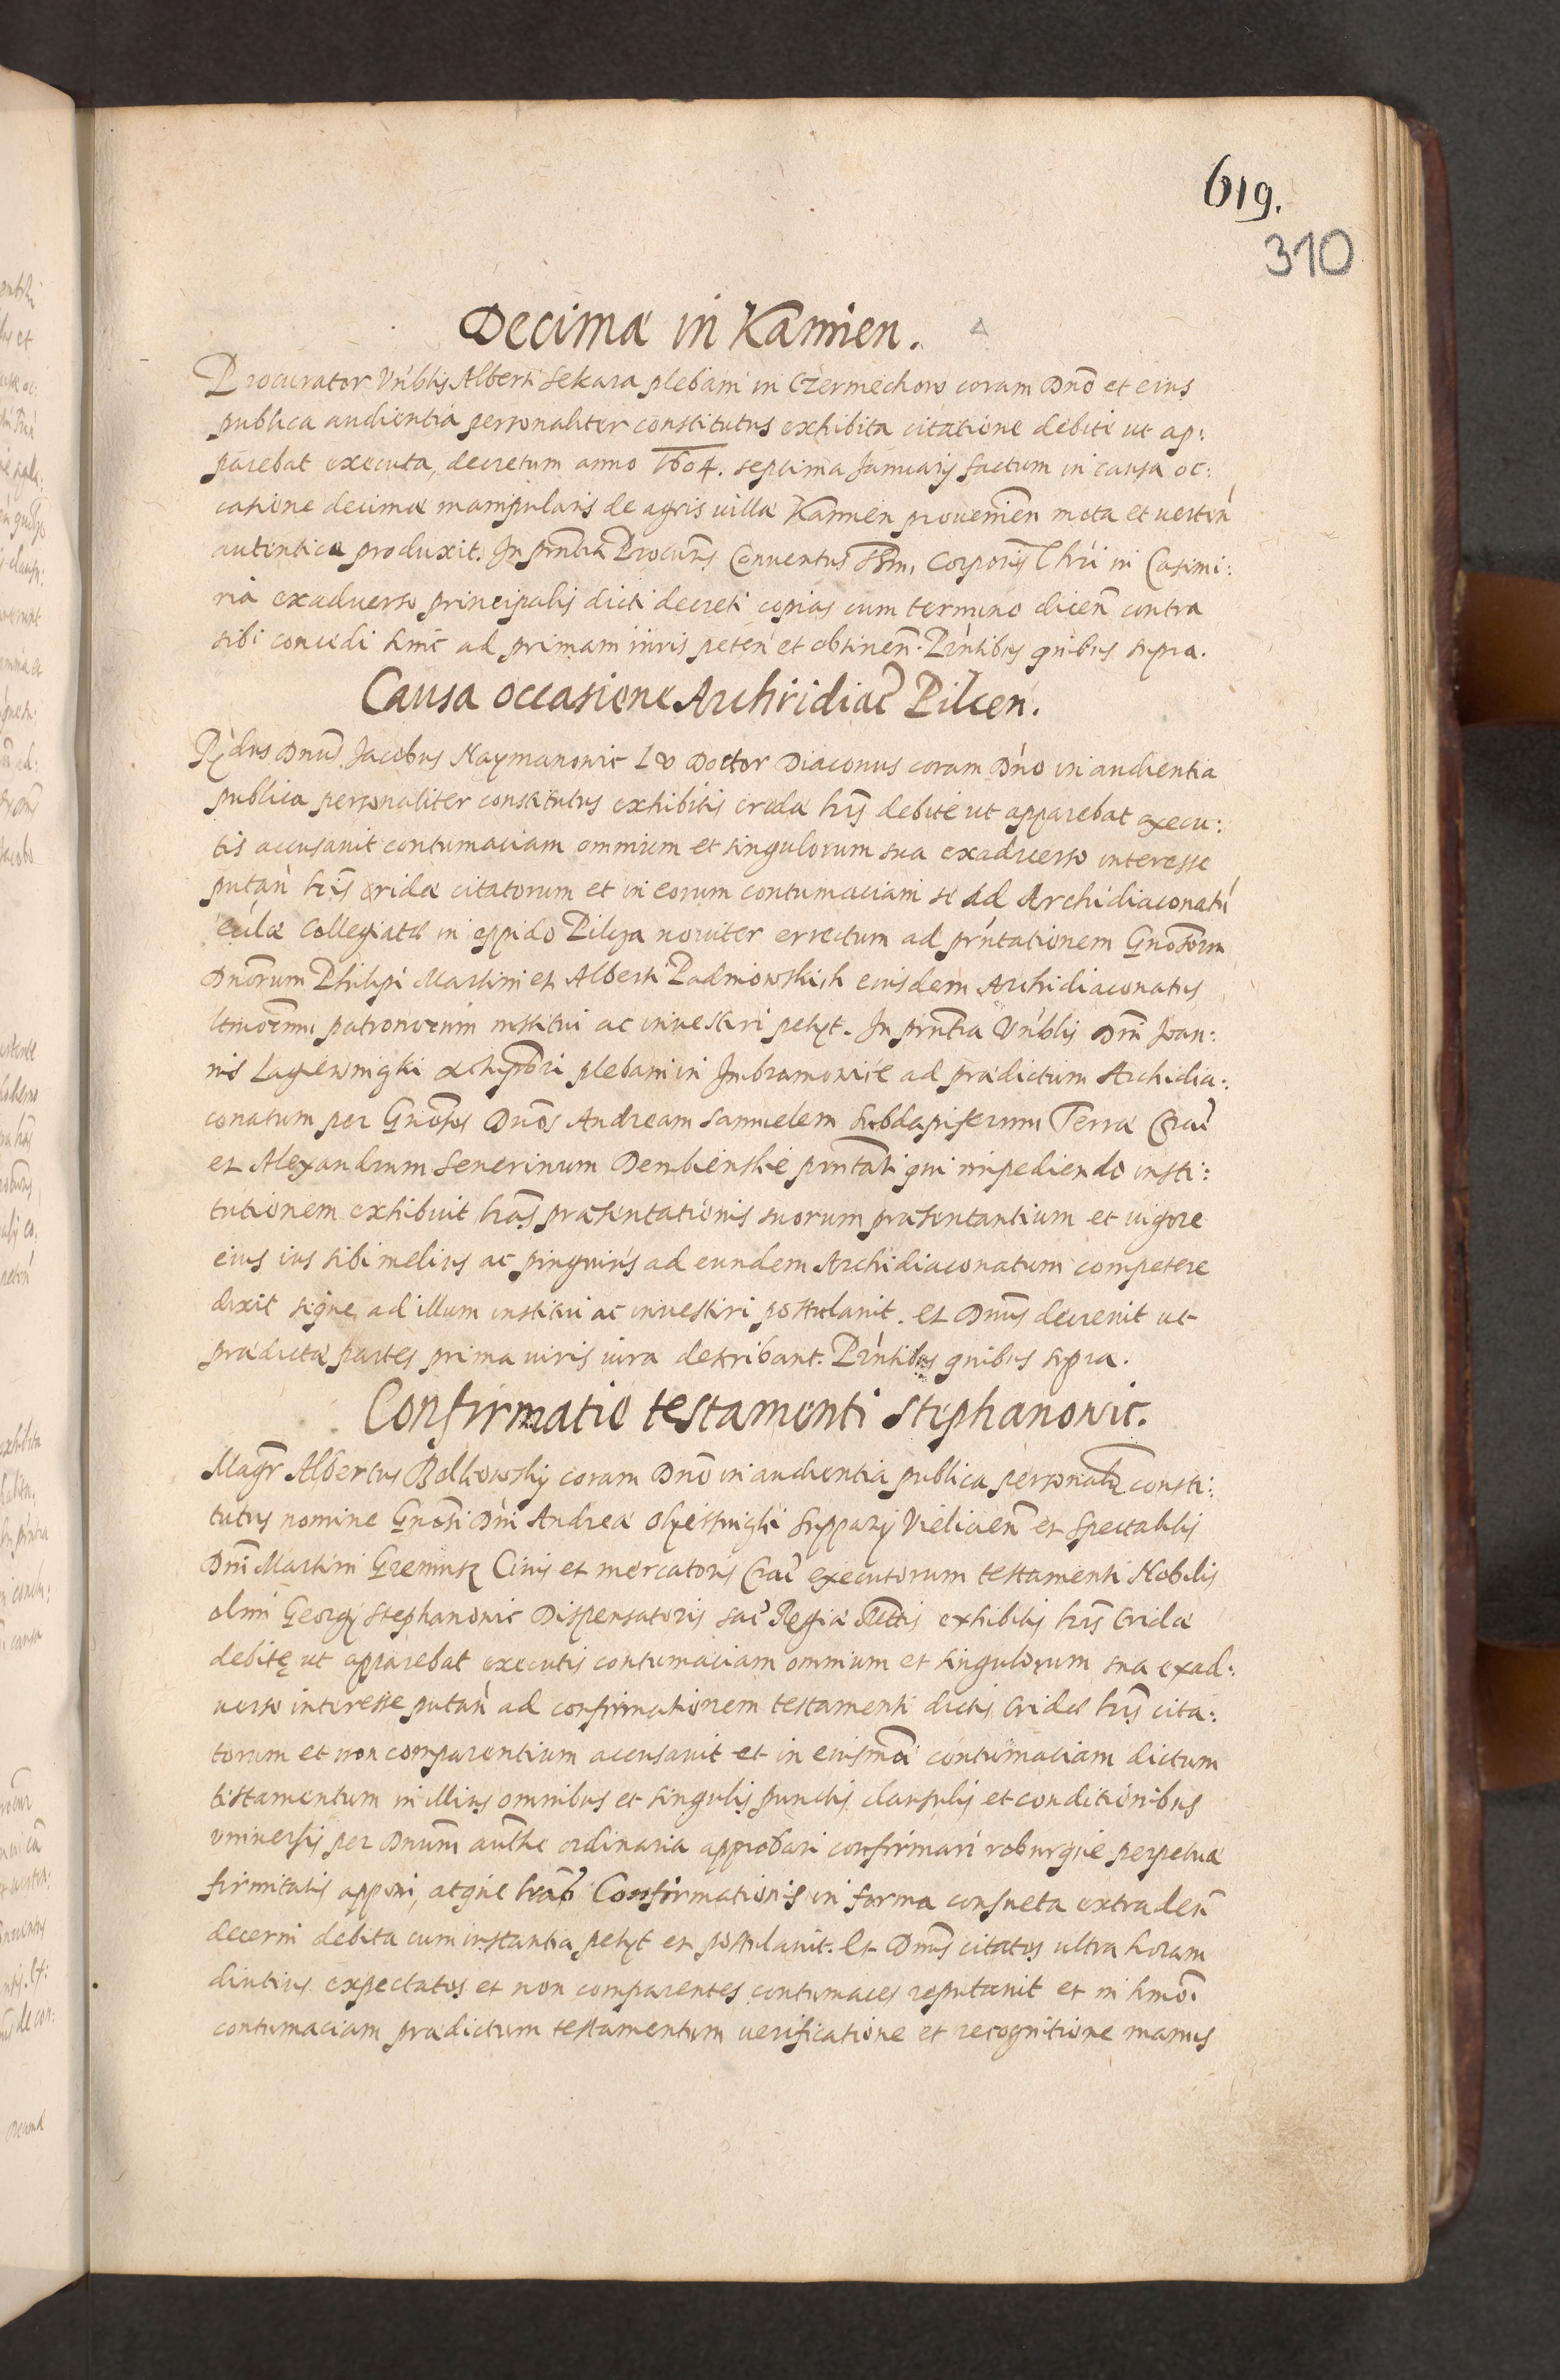 619.
310
Decimæ in Kamien.
Procurator Vnblis Alberti Sekara plebani in Czermichow coram Dno et eius
publica audientia personaliter constitutus exhibita citatione debite ut ap:
parebat executa, decretum anno 1604. septima Januarij factum in causa oc:
catione decimæ manipularis de agris villæ Kamien prouenien mota et verten
autentice produxit. In prntia Procurris Conuentus Corporis Chri in Casimi:
ria exaduerso principalis dicti decreti copias cum termino dicen contra
sibi concedi hinc ad primam iuris peten et obtinen. Prntibus quibus supra.
Causa occasione Archridiac Pilcen.
Rdus Dnus Jacobus Naymanowic Doctor Diaconus coram Dno in audientia
publica personaliter constitutus exhibitis cridæ lris debite ut apparebat execu:
tis accusauit contumaciam omnium et singulorum sua exaduerso interesse
putan lris cridæ citatorum et in eorum contumaciam se ad Archidiaconatu
eccliæ Collegiatæ in oppido Pilcza nouiter errectum ad prntationem Gnosorum
Dnorum Philipi Martini et Alberti Padniowskich eiusdem Archidiaconatus
patronorum institui ac inuestiri petyt. In prntia Vnblis Dni Joan:
nis Lagiewnigki plebani in Imbramowice ad prædictum Archidia:
conatum per Gnosos Dnos Andream Samuelem Subdapiferum Terræ Crac
et Alexandrum Seuerinum Dembienskie prntati qui impediendo insti:
tutionem exhibuit lras præsentationis suorum præsentantium et uigore
eius ius sibi melius ac pinguius ad eundem Archidiaconatum competere
dixit sique ad illum institui ac inuestiri postulauit. et Dnus decreuit ut
prædictæ partes prima iuris iura describant. Prntibus quibus supra.
Confirmatio testamenti Stephanowic.
Magr Albertus Bolkowsky coram Dno in audientia publica personalr consti:
tutus nomine Gnosi Dni Andreæ Supparij Vielicien et Spectabilis
Dni Martini Civis et mercatoris Crac executorum testamenti Nobilis
olim Georgij Stephanowic Dispensatoris sac Regiæ Mttis exhibitis lris Cridæ
debite ut apparebat executis contumaciam omnium et singulorum sua exad:
uerso interesse putan ad confirmationem testamenti dictis cridæ lris cita:
torum et non comparentium accusauit et in eiusmoi contumaciam dictum
testamentum in illius omnibus et singulis punctis clausulis et conditionibus
vniuersis per Dnum authe ordinaria approbari confirmari roburque perpetuæ
firmitatis apponi, atque lras Confirmationis in forma consueta extraden
decerni debita cum instantia petyt et postulauit. Et Dnus citatos ultra horam
diutius expectatos et non comparentes contumaces reputauit et in hmoi
contumaciam prædictum testamentum uerificatione et recognitione manus